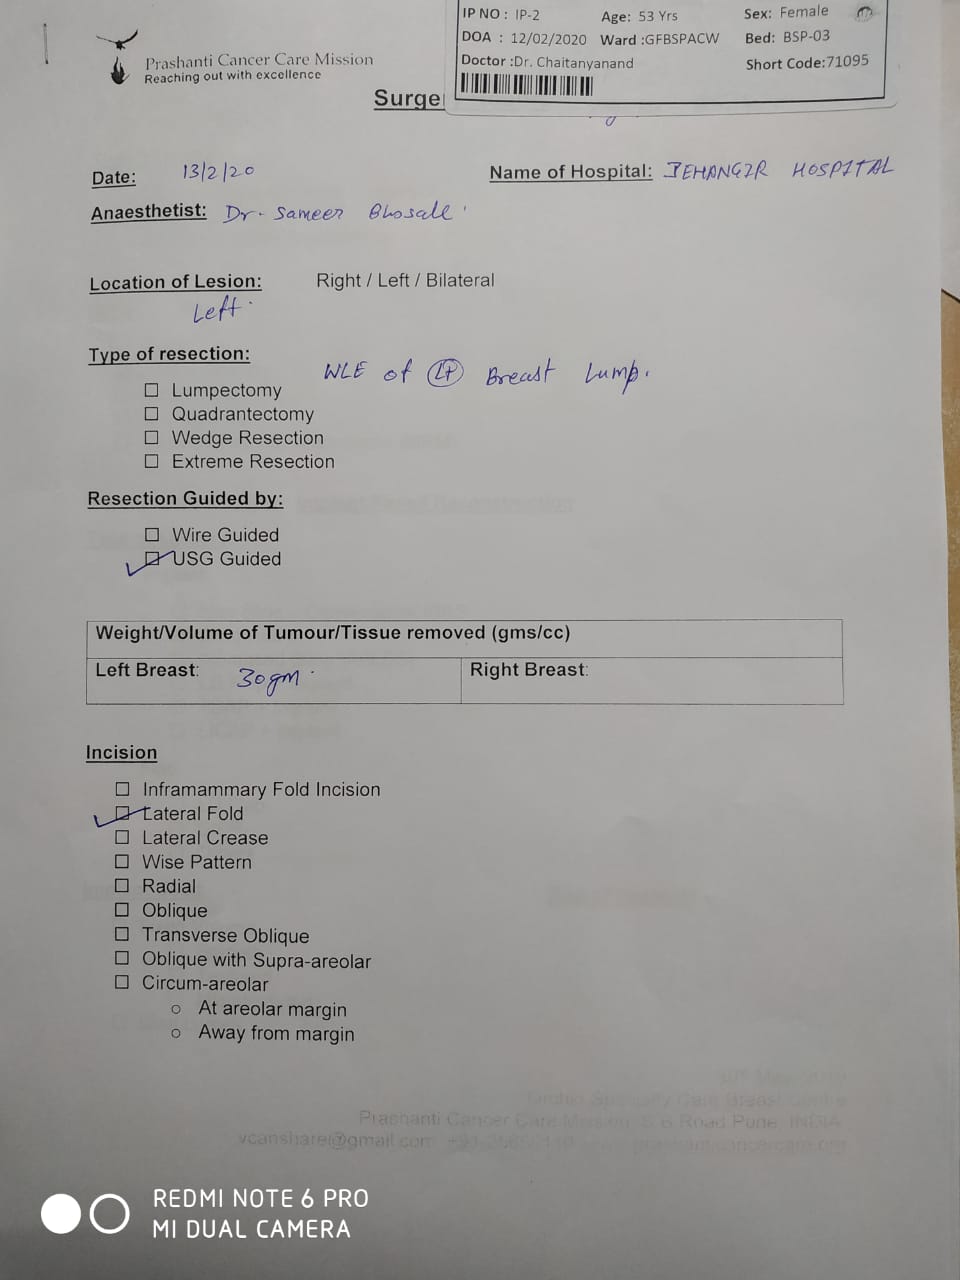 IP NO : IP-2 Age: 53 Yrs Sex: Female
DOA : 12/02/2020 Ward :GFBSPACW Bed: BSP-03
Doctor :Dr. Chaitanyanand Short Code:71095
Prashanti Cancer Care Mission
Reaching out with excellence
Surge
Date: 13/2/20 Name of Hospital: JEHANGIR HOSPITAL
Anaesthetist: Dr. Sameer Bhosale
Location of Lesion: Right / Left / Bilateral
Left.
Type of resection:
WLE of Lt Breast Lump.
☐ Lumpectomy
☐ Quadrantectomy
☐ Wedge Resection
☐ Extreme Resection
Resection Guided by:
☐ Wire Guided
☑ USG Guided
Weight/Volume of Tumour/Tissue removed (gms/cc)
Left Breast: 30gm. Right Breast:
Incision
☐ Inframammary Fold Incision
☑ Lateral Fold
☐ Lateral Crease
☐ Wise Pattern
☐ Radial
☐ Oblique
☐ Transverse Oblique
☐ Oblique with Supra-areolar
☐ Circum-areolar
○ At areolar margin
○ Away from margin
Prashanti Cancer Care Mission, Road Pune, INDIA
REDMI NOTE 6 PRO
MI DUAL CAMERA